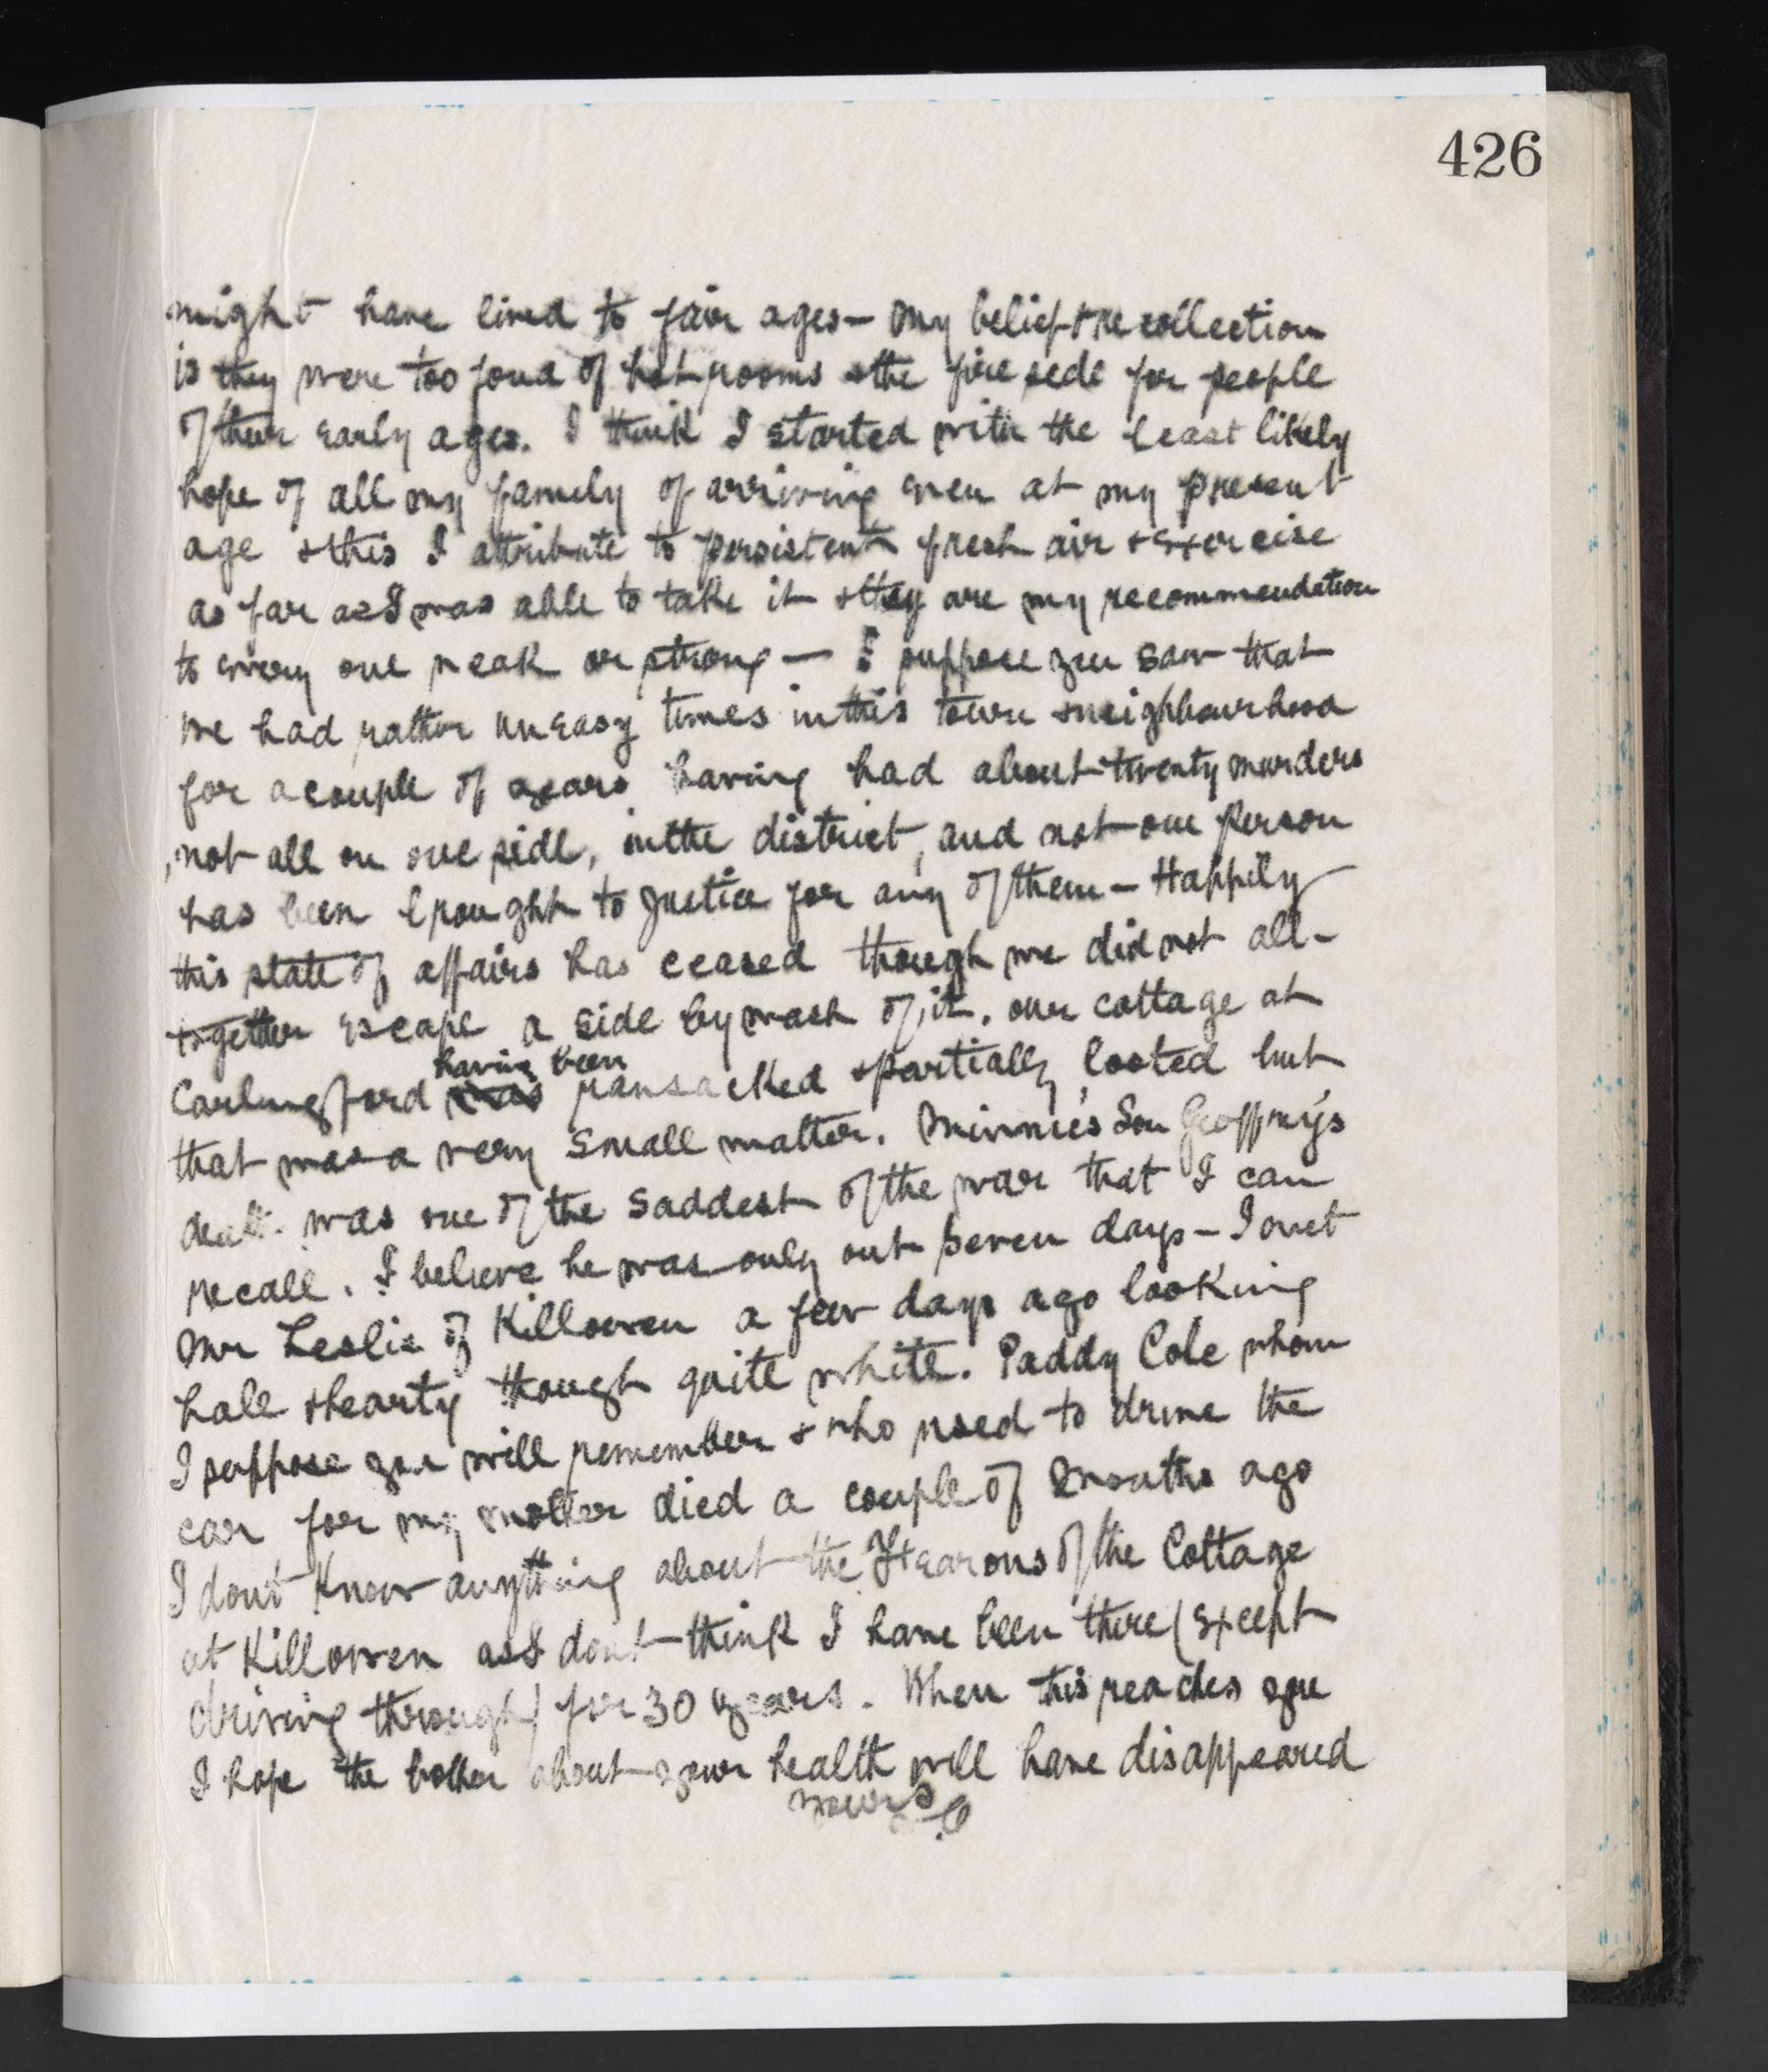 426
might have lived to fair ages - My belief & recollection
is they were too fond of hot rooms & the fire side for people
of their early ages. I think I started with the least likely
hope of all my family of arriving even at my present
age & this I attribute to persistent fresh air & exercise
as far as I was able to take it & they are my recommendation
to every one weak or strong — I suppose you saw that
we had rather uneasy times in this town & neighbourhood
for a couple of years having had about twenty murders
, not all on one side, in the district, and not one person
has been brought to justice for any of them - Happily
this state of affairs has ceased though we did not all-
together escape a side by wash of it, our cottage at
Carlingford having been ransacked & partially looted but
that was a very small matter. Minnie's Son Geoffrey's
death was one of the saddest of the war that I can
recall. I believe he was only out seven days - I met
Mr Leslie of Killowen a few days ago looking
hale & hearty though quite white. Paddy Cole whom
I suppose you will remember & who used to drive the
car for my mother died a couple of months ago
I dont know anything about the of the Cottage
at Killowen as I dont think I have been there (except
driving through) for 30 years. When this reaches you
I hope the bother about your health will have disappeared
Yours